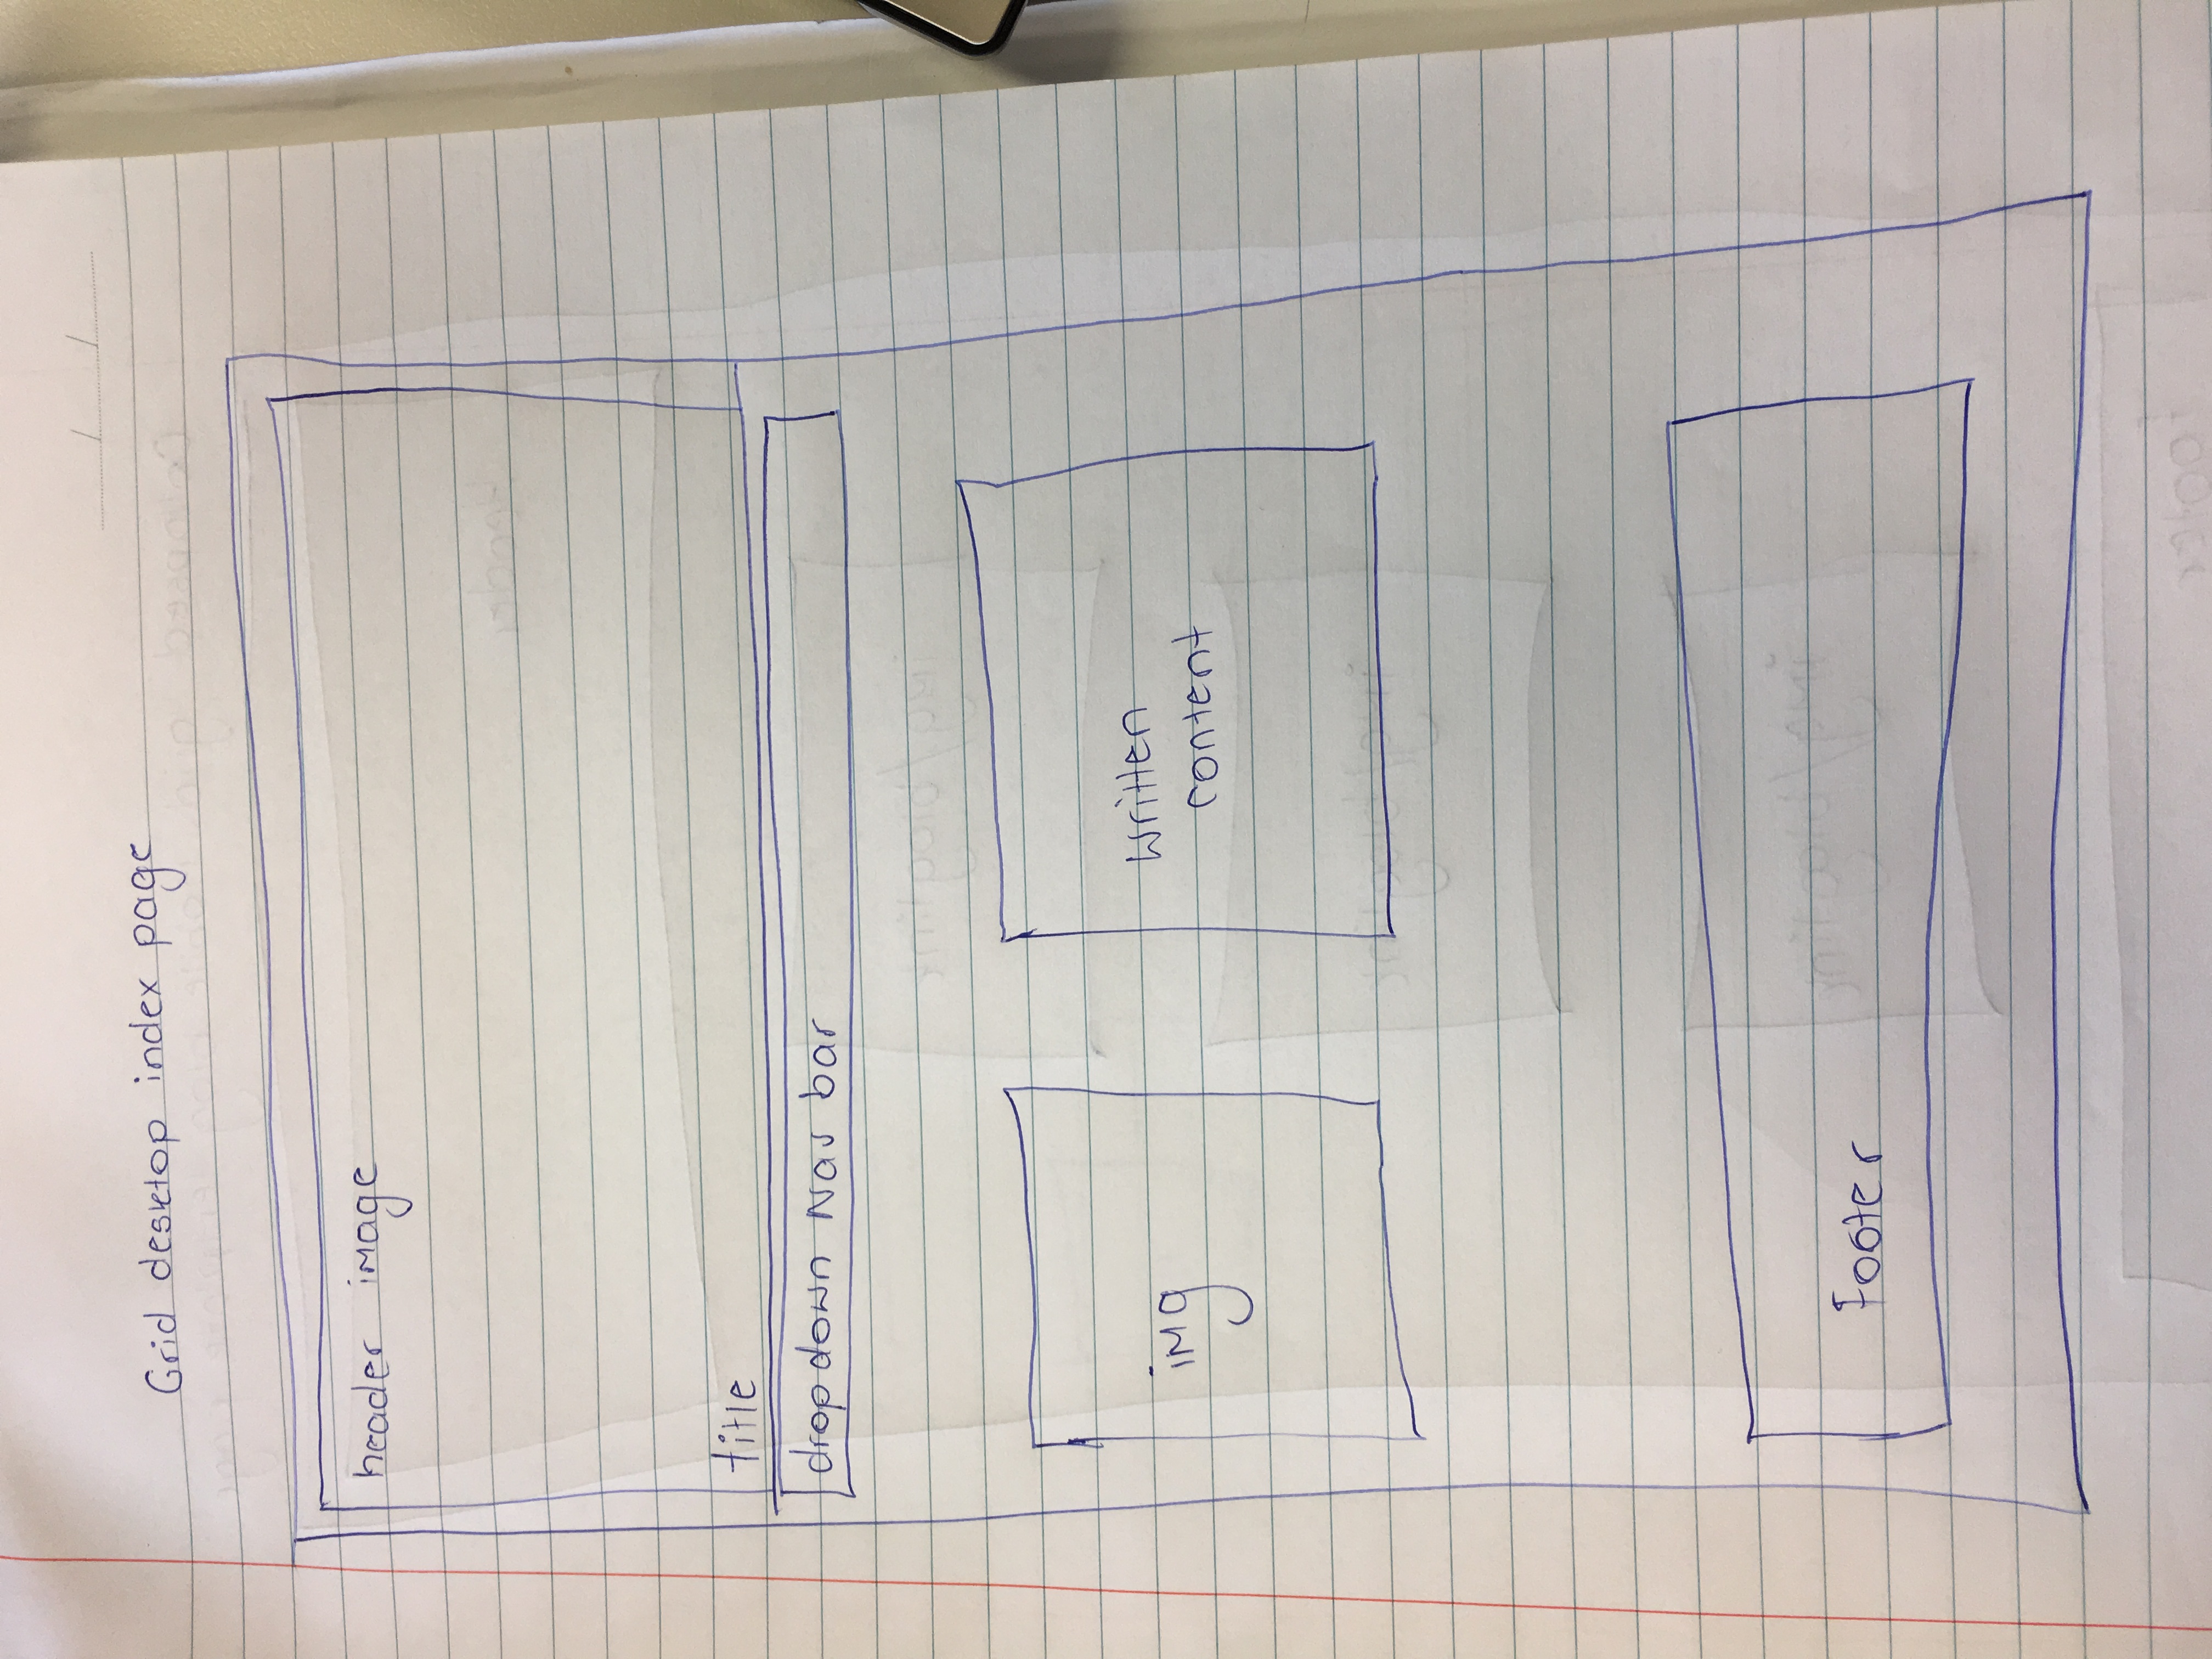 Grid desktop index page
header image
title
dropdown Nav bar
img
written
content
Footer